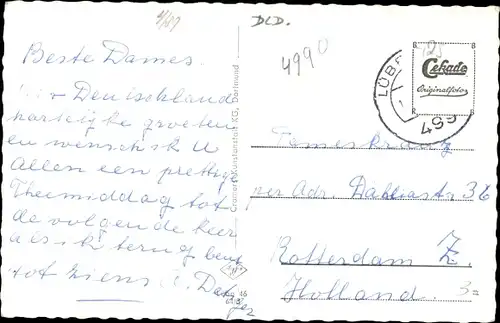 4/109
DLD.
4990
Beste Dames
Deutschland
hartelijke groeten
en wenschk U
allen een prettige
Theemiddag tot
de volgende keer
als ik terug ben
tot ziens
Cramers Kunstanstalt KG, Dortmund
LÜBB
499
Cekade
Originalfoto
per Adr. Dahliastr 36
Rotterdam Z.
Holland. 3=